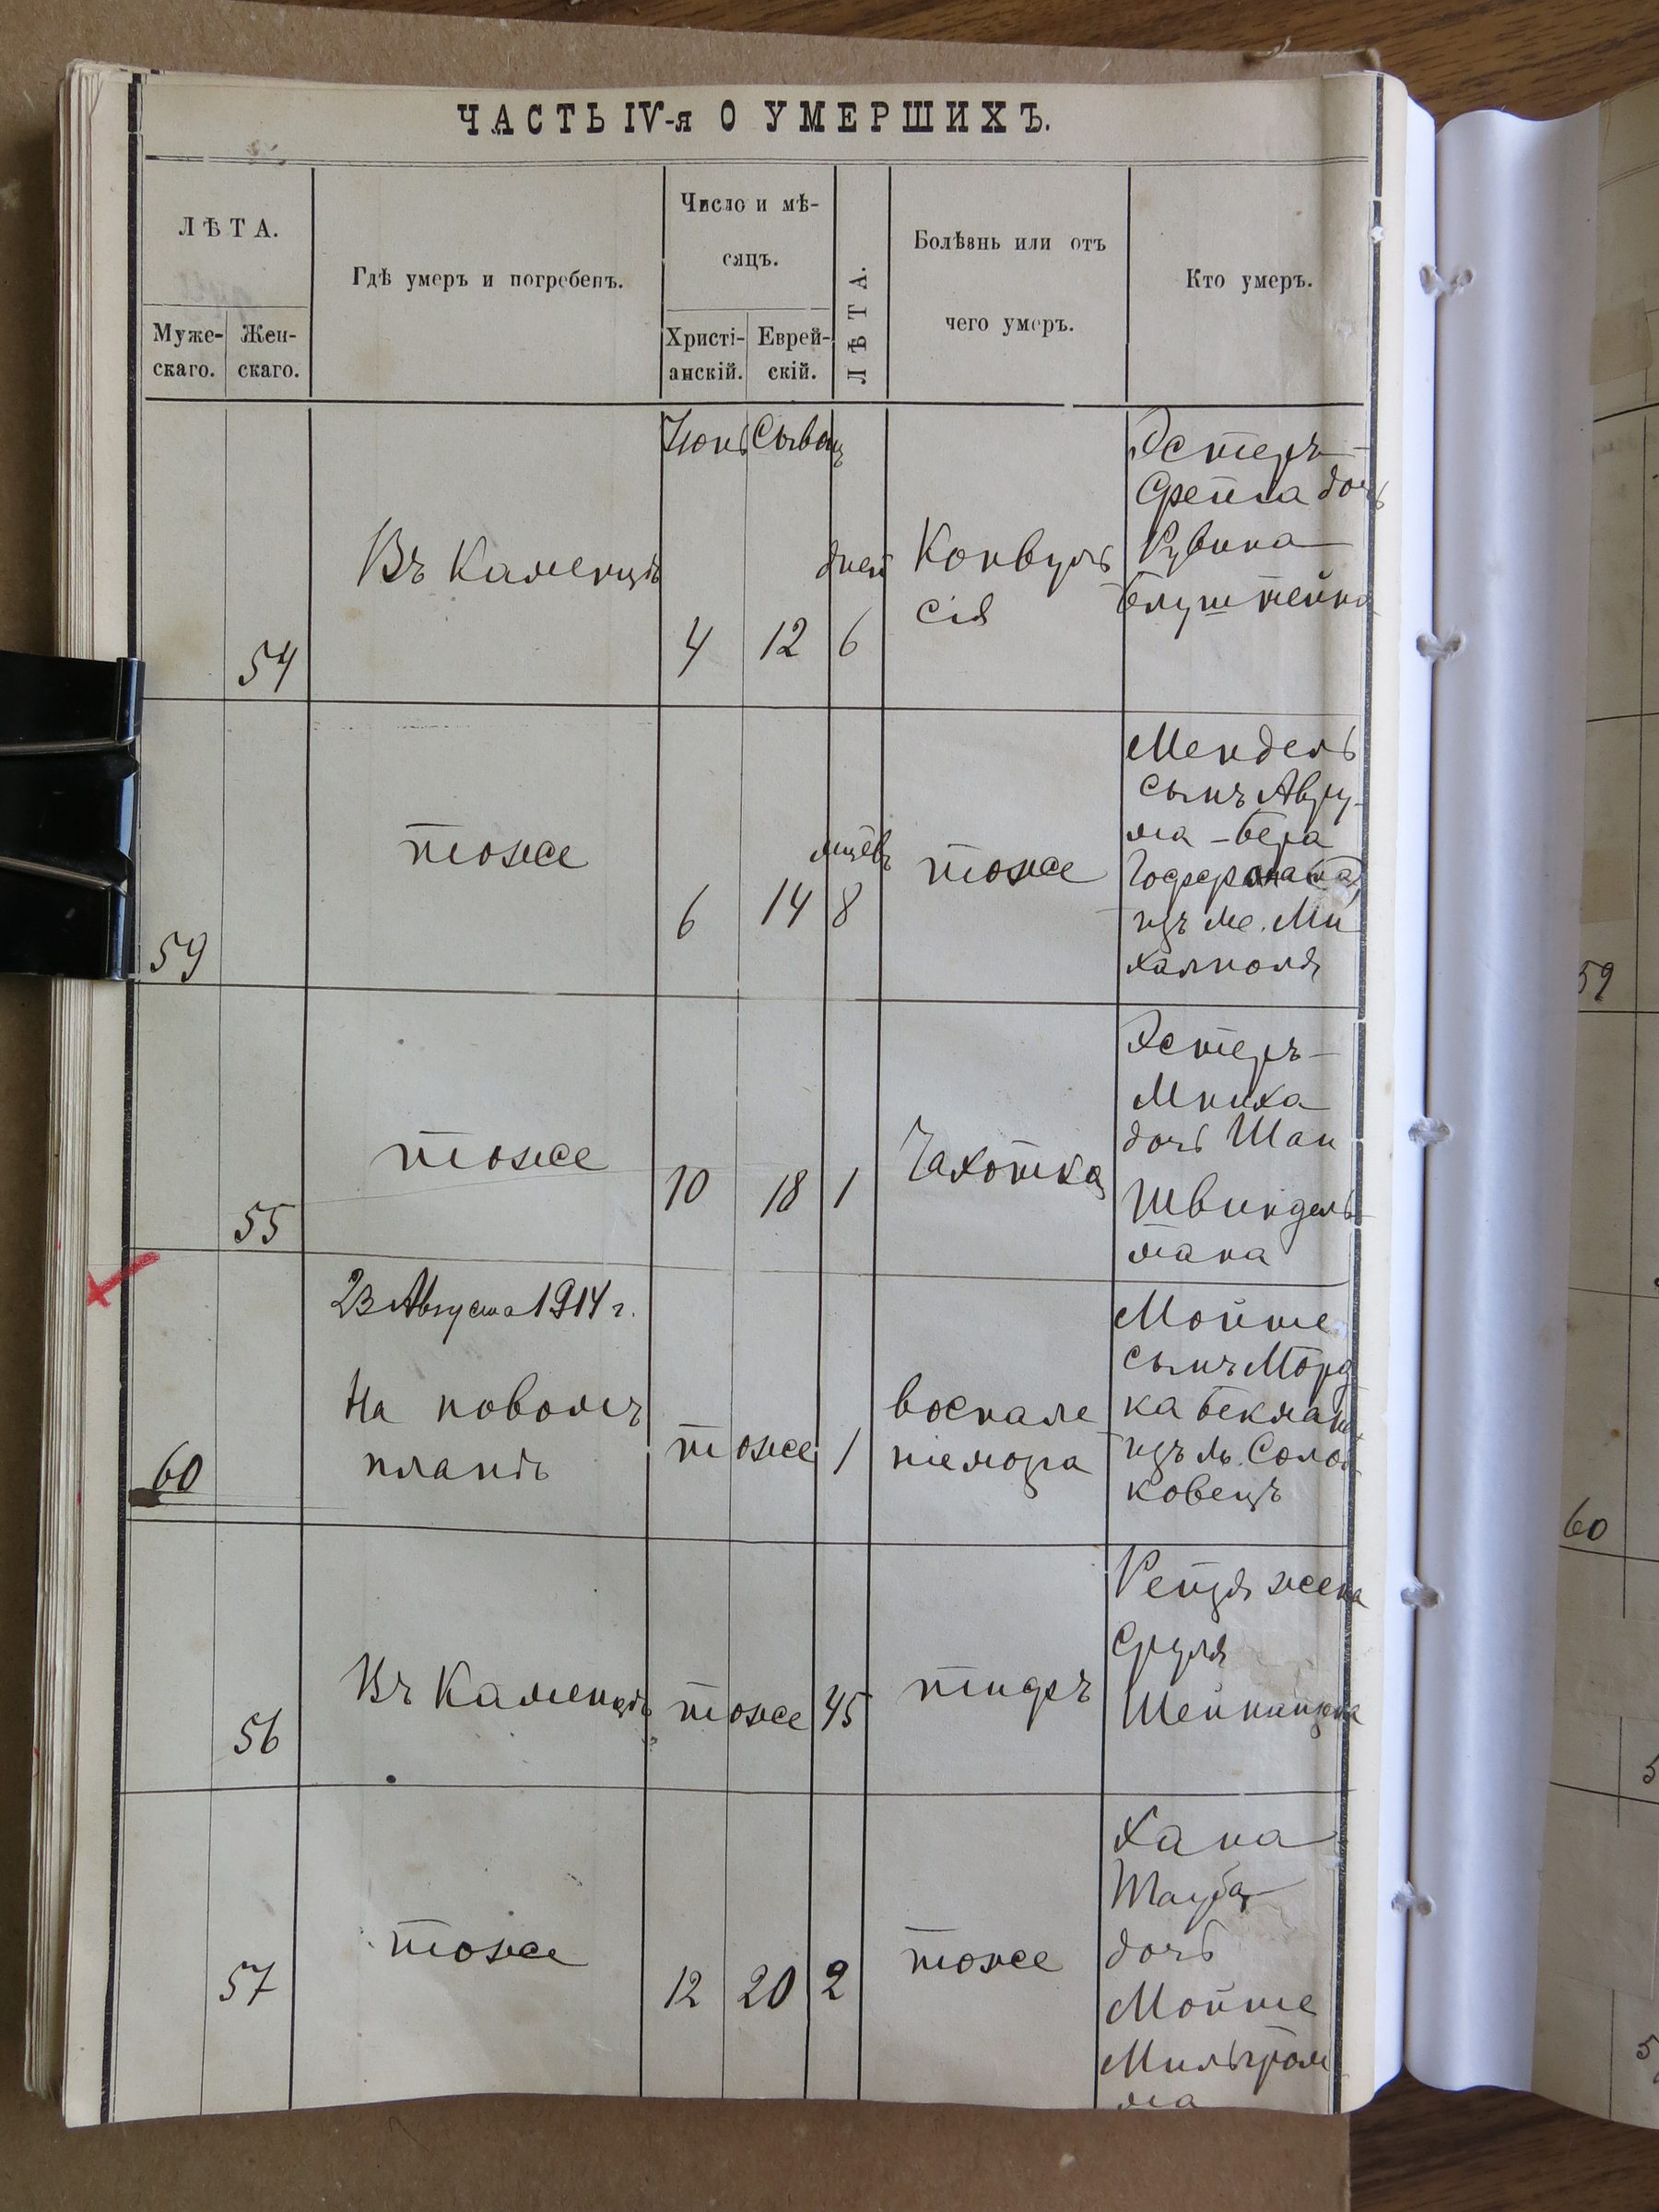 ЧАСТЬ IV-я О УМЕРШИХЪ.
ЛѢТА.
Муже-
скаго.
Жен-
скаго.
Гдѣ умеръ и погребенъ.
Число и мѣ-
сяцъ.
Христі-
анскій.
Еврей-
скій.
ЛѢТА.
Болѣзнь или отъ
чего умеръ.
Кто умеръ.
54
Въ Каменцѣ
Іюнь Сыванъ
4 12
дней
6
Конвуль
сія
Эстеръ-
Фейга дочь
Рувина
Блуштейна
59
тоже
6 14
мцевъ
8
тоже
Мендель
сынъ Авру-
ма-Бера
изъ м. Ми
халполя
55
тоже
10 18 1
Чахотка
Эстеръ-
Миха
дочь Шаи
Швиндель
мана
60
23 Августа 1914 г.
На новомъ
планѣ
тоже 1
воспале
Мойше
сынъ Морд
ка Бекмана
изъ м. Солод
ковецъ
56
Въ Каменцѣ
тоже 45
тифъ
Рейзя жена
Сруля
57
тоже
12 20 2
тоже
Хана
Тауба
дочь
Мойше
Мильгром
ма
59
60
5
5